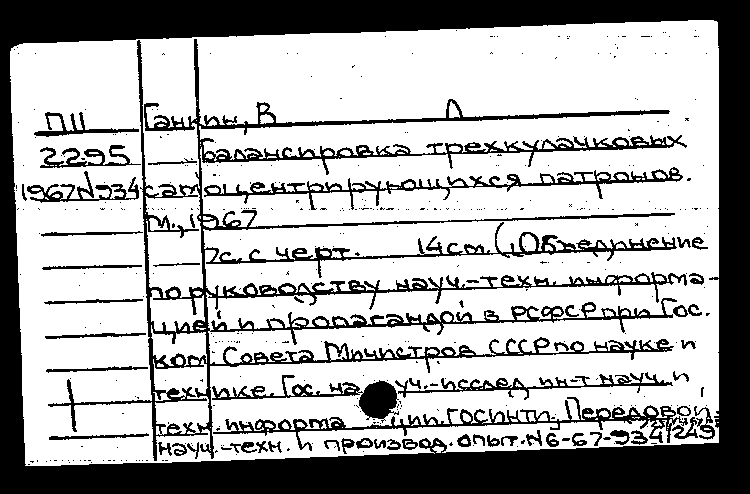 П11 Ганкин, В Л
2295 Балансировка трехкулачковых
1967 N934 самоцентрирующихся патронов.
М., 1967
7с. с черт. 14см. (Объединение
по руководству науч.-техн. информа-
цией и пропагандой в РСФСР при Гос.
ком. Совета Министров СССР по науке и
технике. Гос. науч.-исслед. ин-т науч. и
техн. информации. ГОСИНТИ, Передовой
науч.-техн. и производ. опыт. N6-67-934/249